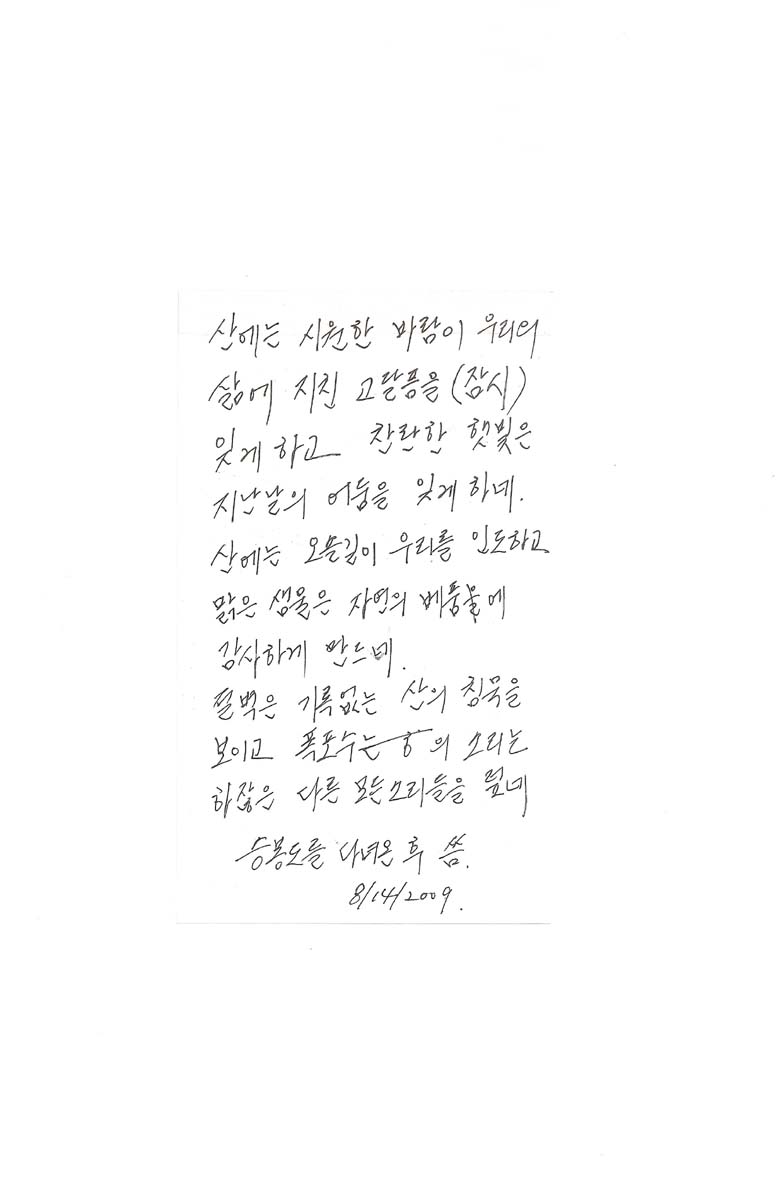 산에는 시원한 바람이 우리의
삶에 지친 고달픔을 (잠시)
잊게 하고 찬란한 햇빛은
지난날의 어둠을 잊게 하네.
산에는 오솔길이 우리를 인도하고
맑은 샘물은 자연의 베품물에
감사하게 만드네.
절벽은 기록없는 산의 침묵을
보이고 폭포수의 소리는
하잖은 다른 모든소리들을 덮네
승봉도를 다녀온 후 씀.
8/14/2009.